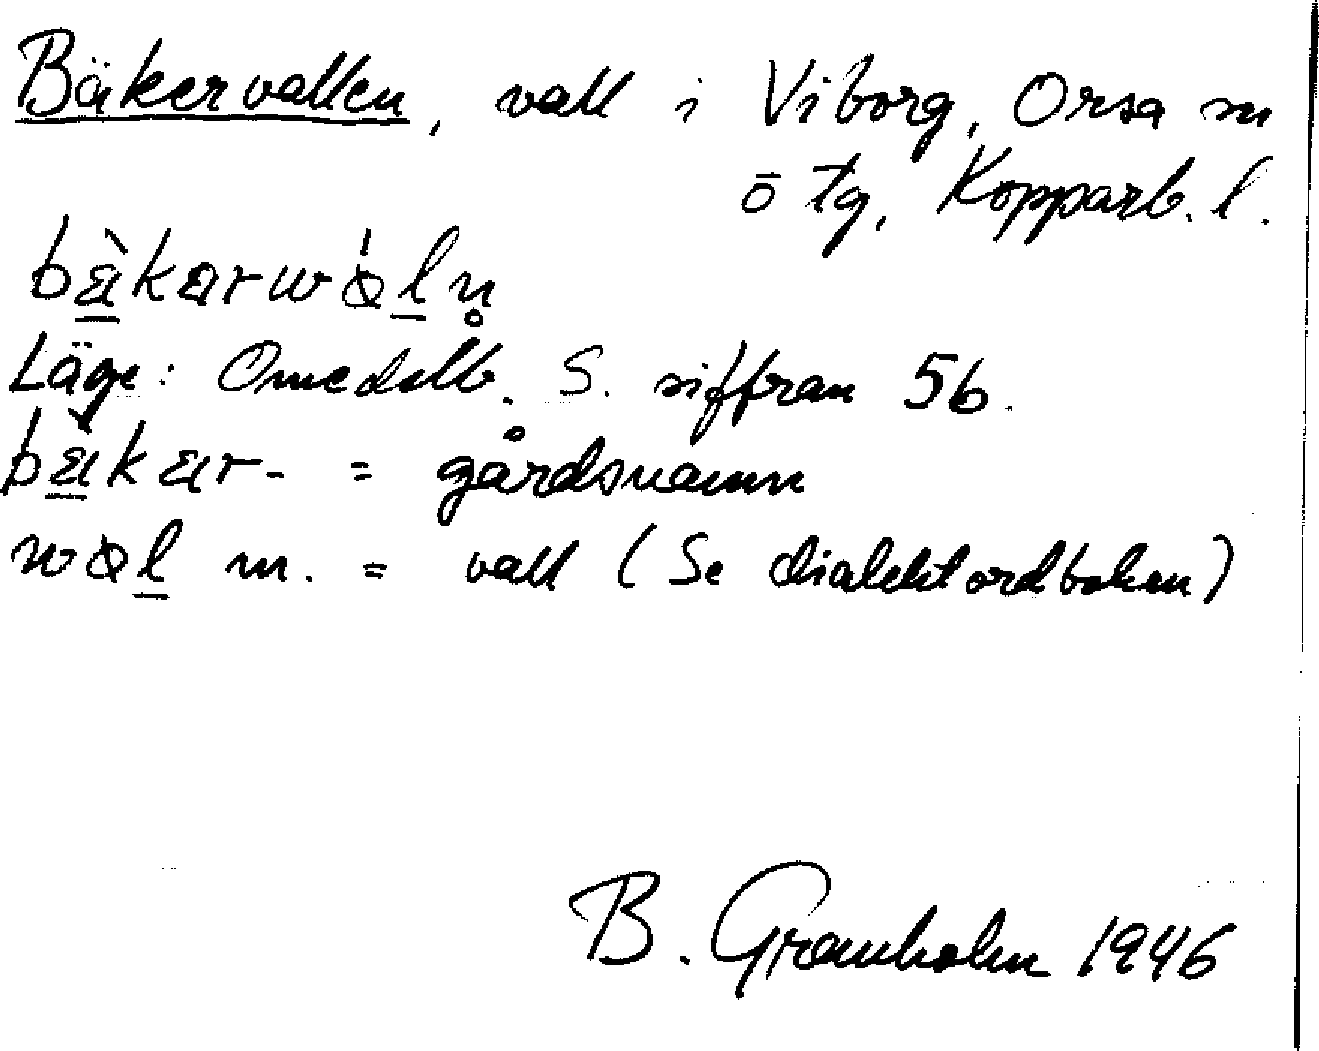 Bäkervallen, vall i Viborg, Orsa sn
ō tg, Kopparb. l.
Läge: Omedelb. S. siffran 56.
= gårdsnamn
m. = vall (Se dialektordboken)
B. Granholm 1946